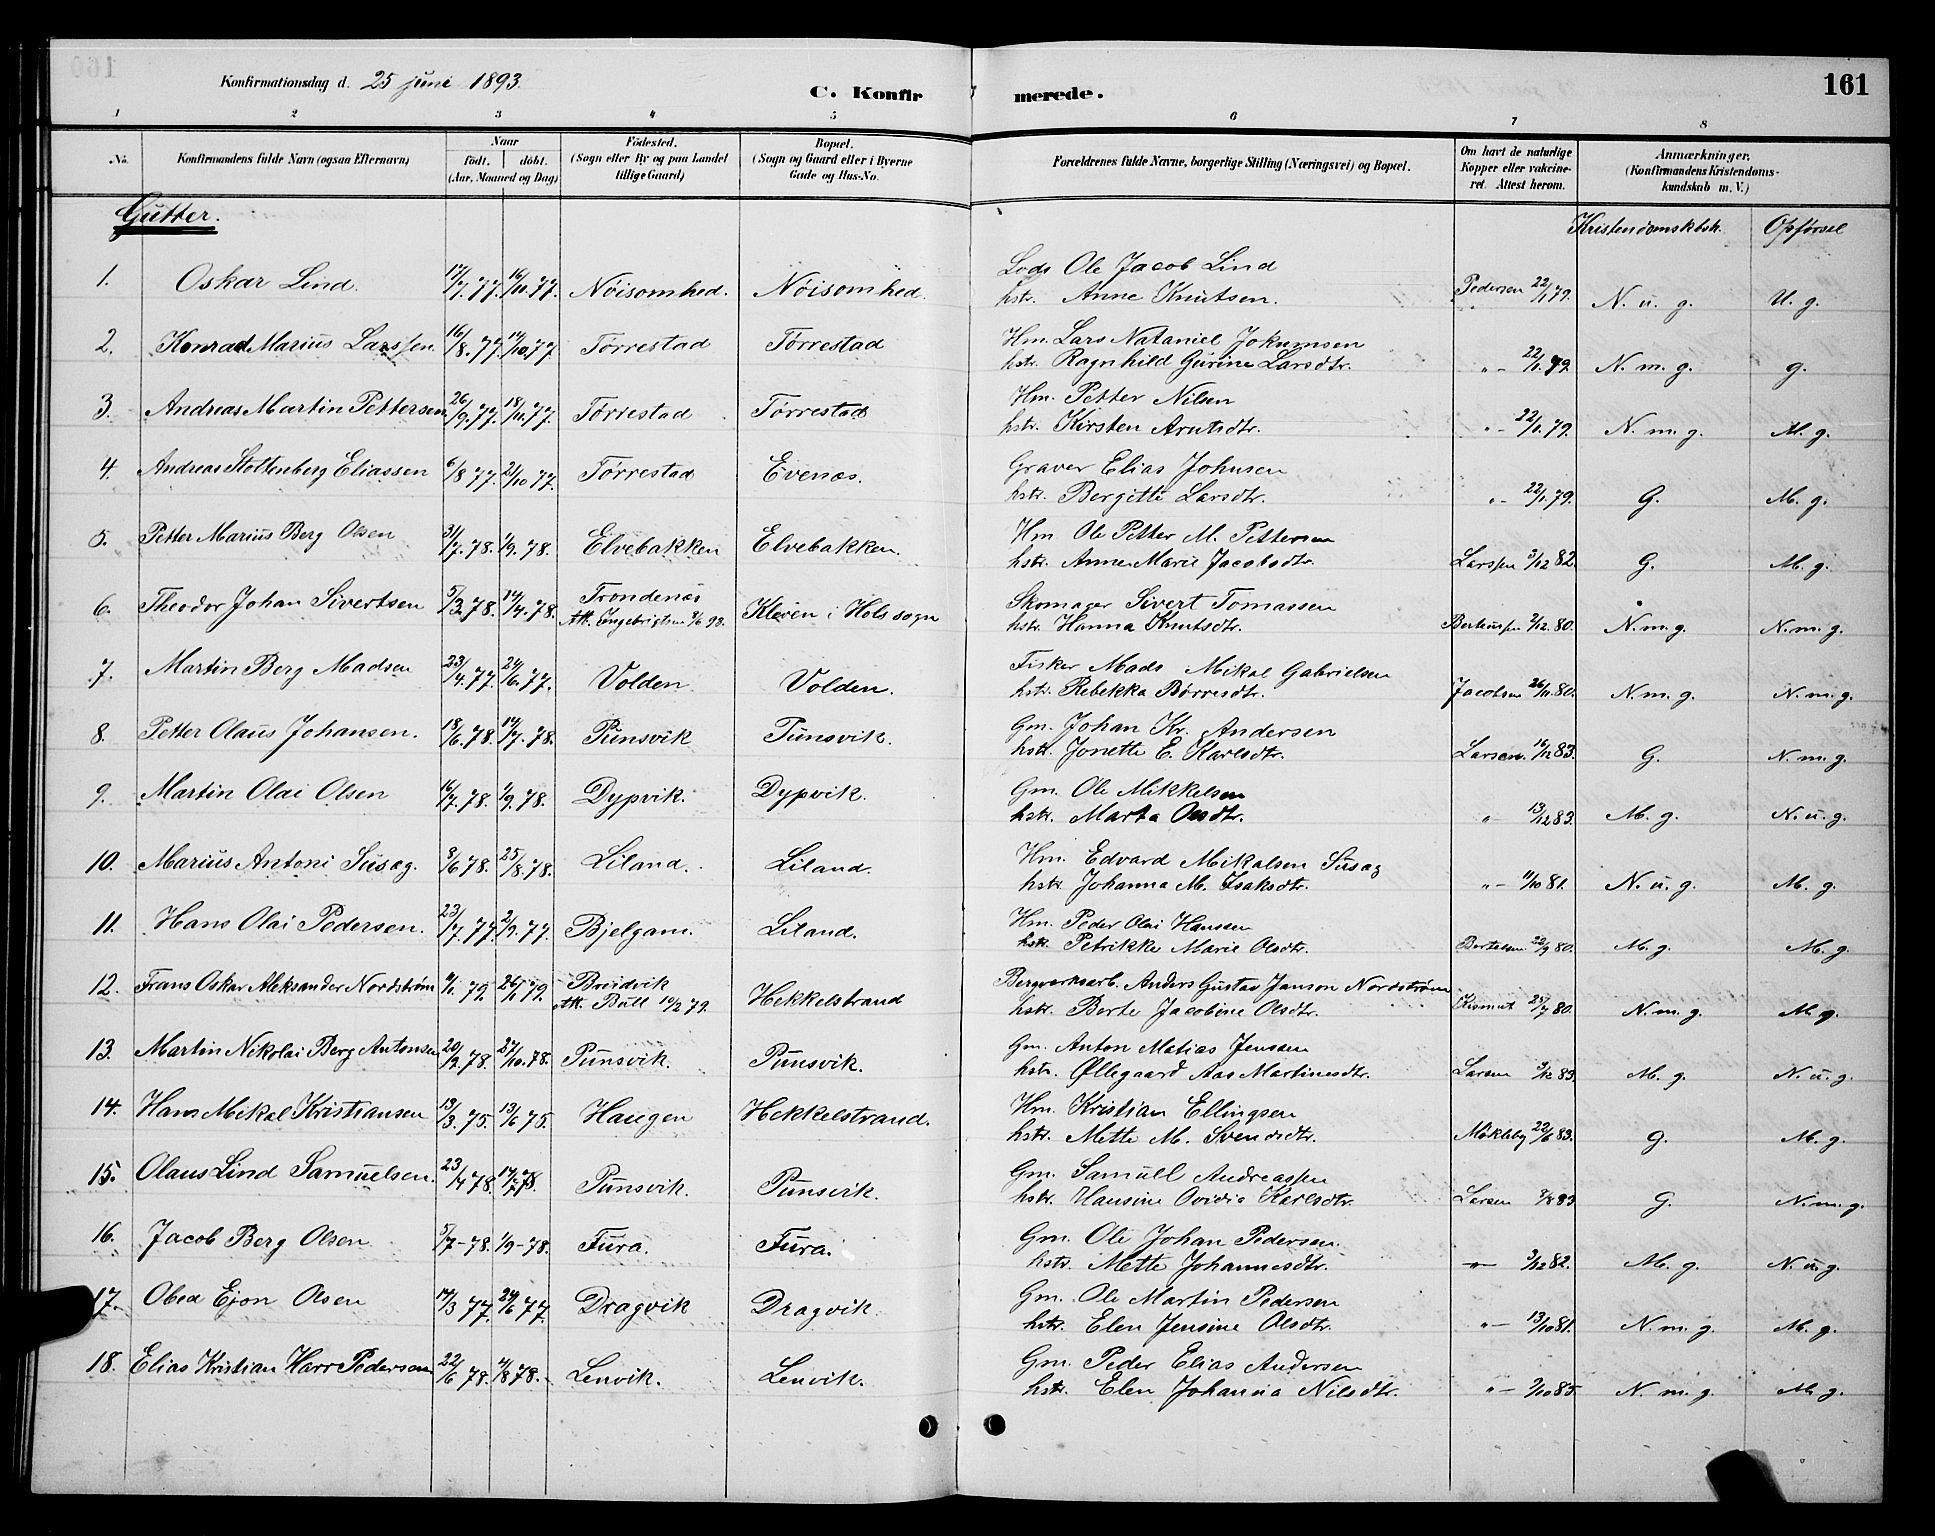 Konfirmationsdag d. 25 juni 1893.
C. Konfirmerede.
161
1 2 3 4 5 6 7 8
No.
Konfirmandens fulde Navn (ogsaa Efternavn)
Naar
födt. döbt.
(Aar, Maaned og Dag)
Födested.
(Sogn eller By og paa Landet
tillige Gaard)
Bopæl.
(Sogn og Gaard eller i Byerne
Gade og Hus-No.
Forældrenes fulde Navne, borgerlige Stilling (Næringsvei) og Bopæl.
Om havt de naturlige
Kopper eller vakcine-
ret. Attest herom.
Anmærkninger.
(Konfirmandens Kristendoms-
kundskab m. V.)
Gutter.
Kristendomskbsk. Opførsel
1. Oskar Lind. 17/7.77. 16/10.77. Nöisomhed. Nöisomhed. Lods Ole Jacob Lind
hstr. Anne Knutsen. Pedersen 22/1 79. N. u. g. U. g.
2. Konrad Marius Larssen. 16/8.77. 14/10.77 Tørrestad Tørrestad Hm. Lars Nataniel Jokumsen
hstr. Ragnhild Gurine Larsdtr. „ — 22/1.79. N. m. g. g.
3. Andreas Martin Pettersen 26/9.77. 18/10.77. Tørrestad Tørrestad Hm. Petter Nilsen
hstr. Kirsten Arntsdtr. „ — 22/1.79. N. m. g. M. g.
4. Andreas Stoltenberg Eliassen 6/8 77. 21/10 77. Tørrestad Evenæs. Graver Elias Johnsen
hstr. Bergitte Larsdtr. „ — 22/1.79. G. M. g.
5. Petter Marius Berg Olsen 31/7.78. 1/9.78. Elvebakken Elvebakken. Hm Ole Petter M. Pettersen
hstr. Anne Marie Jacobsdtr. Larssen 3/12 82. G. M. g.
6. Theodor Johan Sivertsen 5/3.78. 14/4.78. Trondenæs
Att. Engebrigtsen 8/6 93. Kleven i Hols sogn Skomager Sivert Tomassen
hstr. Hanna Knutsdtr. 2/12.80. N. m. g. N. m. g.
7. Martin Berg Madsen 23/4.77. 24/6.77. Volden Volden. Fisker Mads Mikal Gabrielsen
hstr. Rebekka Börresdtr. Jacobsen 26/11.80. N. m. g. N. m. g.
8. Petter Olaus Johansen. 18/6.78. 14/7.78. Punsvik Punsvik. Gm. Johan Kr. Andersen
hstr. Jonette E. Karlsdtr. Larsen. 16/12 83. G. N. m. g.
9. Martin Olai Olsen 16/7.78. 1/9.78. Dypvik. Dypvik. Gm. Ole Mikkelsen
hstr. Marta Olsdtr. „ 13/12 83. M. g. N. u. g.
10. Marius Antoni Susæg. 8/6 78. 25/8.78. Liland. Liland. Hm. Edvard Mikalsen Susæg
hstr. Johanna M. Isaksdtr. „ — 11/10 81. N. u. g. M. g.
11. Hans Olai Pedersen. 23/7.77. 2/9.77. Bjelgam. Liland. Hm. Peder Olai Hansen
hstr. Petrikke Marie Olsdtr. Bertelsen 22/9 80. M. g. M. g.
12. Frans Oskar Aleksander Nordstrøm 11/1.79. 26/1 79. Breidvik
Att. Bull 10/2 79. Hekkelstrand Bergverksarb. Anders Gustav Janson Nordstrøm
hstr. Berte Jacobine Olsdtr. 25/7 80. N. m. g. M. g.
13. Martin Nikolai Berg Antonsen 20/9.78. 27/10.78. Punsvik. Punsvik. Gm. Anton Matias Jenssen
hstr. Øllegaard Aas Martinesdtr. Larsen 3/12 83. M. g. N. u. g.
14. Hans Mikal Kristiansen 13/3.75. 13/6 75. Haugen Hekkelstrand. Hm. Kristian Ellingsen
hstr. Mette M. Svendsdtr. Mökleby 22/6 83. G. M. g.
15. Olaus Lind Samuelsen. 23/4 78. 14/7.78. Punsvik. Punsvik. Gm. Samuel Andreassen
hstr. Hansine Ovidia Karlsdtr. Larsen G. N. m. g.
16. Jacob Berg Olsen 5/7-78. 1/9-78. Fura. Fura. Gm. Ole Johan Pedersen.
hstr. Mette Johannesdtr. —„— 3/12 82. M. g. N. u. g.
17. Obed Ejon Olsen 14/3 77. 24/6 77. Dragvik Dragvik. Gm. Ole Martin Pedersen
hstr. Elen Jensine Olsdtr. „ — 13/10 81. N. m. g. M. g.
18. Elias Kristian Harr Pedersen 22/6 78. 11/8 78. Lenvik. Lenvik. Gm. Peder Elias Andersen
hstr. Elen Johanna Nilsdtr. „ — 2/10 85. N. m. g. M. g.